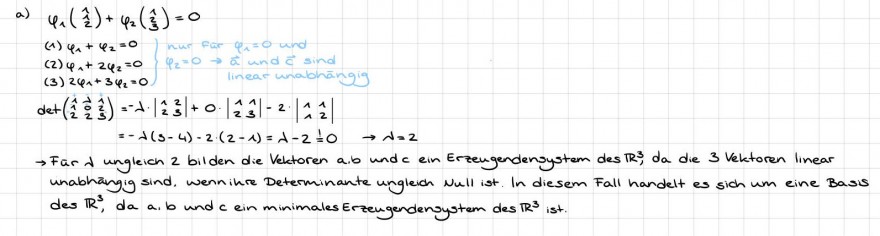 a) φ₁(1 1 2) + φ₂(1 2 3) = 0
(1) φ₁ + φ₂ = 0
(2) φ₁ + 2φ₂ = 0
(3) 2φ₁ + 3φ₂ = 0
nur für φ₁ = 0 und
φ₂ = 0 → a⃗ und c⃗ sind
linear unabhängig
det(1 λ 1 / 1 0 2 / 2 2 3) = -λ·|1 2 / 2 3| + 0·|1 1 / 2 3| - 2·|1 1 / 1 2|
= -λ(3-4) - 2·(2-1) = λ - 2 =! 0 → λ = 2
→ Für λ ungleich 2 bilden die Vektoren a,b und c ein Erzeugendensystem des ℝ³, da die 3 Vektoren linear
unabhängig sind, wenn ihre Determinante ungleich Null ist. In diesem Fall handelt es sich um eine Basis
des ℝ³, da a, b und c ein minimales Erzeugendensystem des ℝ³ ist.